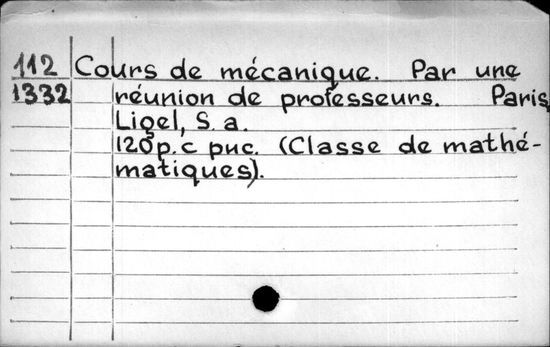 112 Cours de mécanique. Par une
1332 réunion de professeurs. Paris,
Ligel, S. a.
120p. с рис. (Classe de mathé-
matiques).